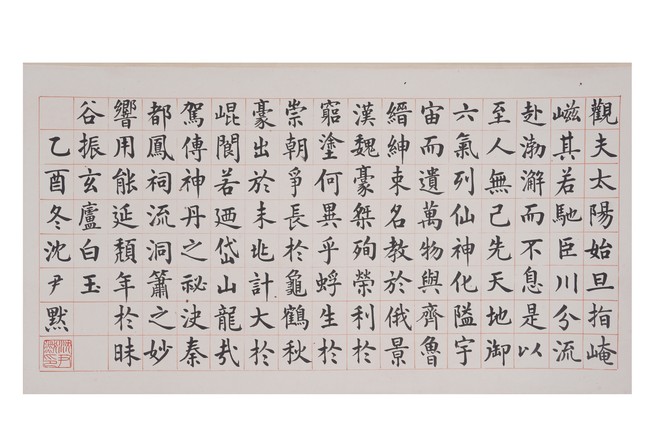 觀夫太陽始旦指崦
嵫其若馳臣川分流
赴渤澥而不息是以
至人無己先天地御
六氣列仙神化隘宇
宙而遺萬物與齊魯
縉紳束名教於俄景
漢魏豪桀殉榮利於
窮塗何異乎蜉生於
崇朝爭長於龜鶴秋
豪出於未兆計大於
崐閬若迺岱山龍
駕傳神丹之祕決秦
都鳳祠流洞簫之妙
響用能延頹年於昧
谷振玄廬白玉
乙酉冬沈尹默